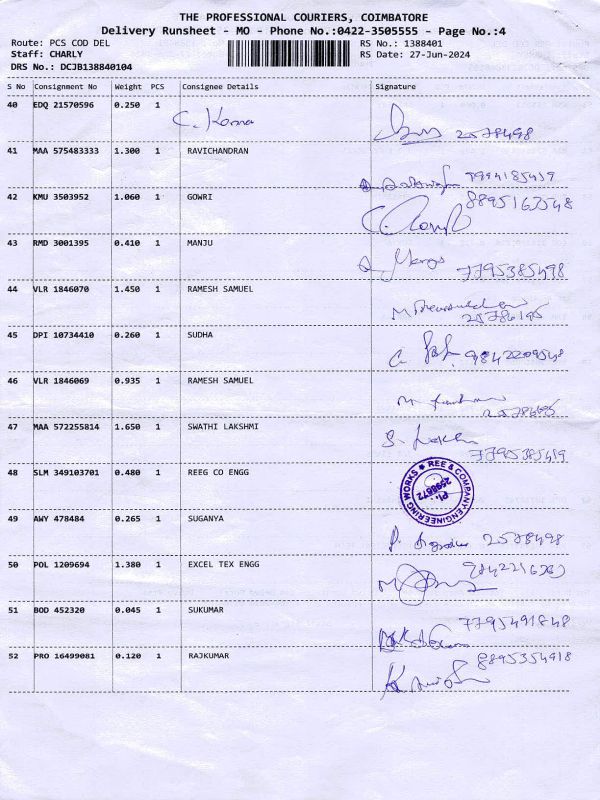 THE PROFESSIONAL COURIERS, COIMBATORE
Delivery Runsheet - MO - Phone No.:0422-3505555 - Page No.:4
Route: PCS COD DEL RS No.: 1388401
Staff: CHARLY RS Date: 27-Jun-2024
DRS No.: DCJB138840104
S No Consignment No Weight PCS Consignee Details Signature
40 EDQ 21570596 0.250 1
C. Koma 2578498
41 MAA 575483333 1.300 1 RAVICHANDRAN
9994185459
42 KMU 3503952 1.060 1 GOWRI 8895163548
43 RMD 3001395 0.410 1 MANJU
7795385498
44 VLR 1846070 1.450 1 RAMESH SAMUEL
45 DPI 10734410 0.260 1 SUDHA
9842209548
46 VLR 1846069 0.935 1 RAMESH SAMUEL
47 MAA 572255814 1.650 1 SWATHI LAKSHMI
7795385419
48 SLM 349103701 0.480 1 REEG CO ENGG
REE & COMPANY ENGINEERING WORKS
Ph: 2598872
49 AWY 478484 0.265 1 SUGANYA
2578498
50 POL 1209694 1.380 1 EXCEL TEX ENGG
51 BOD 452320 0.045 1 SUKUMAR
7795491848
52 PRO 16499081 0.120 1 RAJKUMAR 8895354918